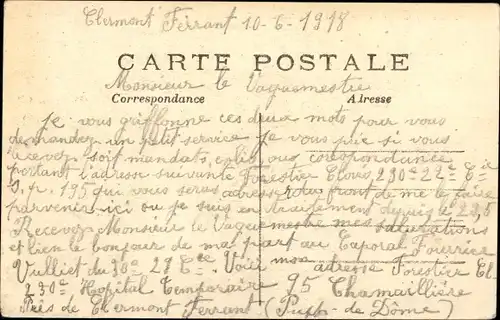 Clermont Ferrant 10-6-1918
CARTE POSTALE
Monsieur le Vaguemestre
Correspondance Adresse
Je vous griffonne ces deux mots pour vous
demander un petit service je vous prie si vous
recever soit mandats, colis, ous corespondance
portant l'adresse suivante Forestier Clovis 230e 22e Cie
S.p. 195 qui vous serus adresse du front de me le faire
parvenir ici ou je suis en traitement depuis le 25,5
Recever Monsieur le Vaguemestre mes salutations
et bien le bonjour de ma part au Caporal Fourrier
Vulliet du 30e 22 Cie. Voici mon adresse Forestier Cl-
230e Hopital Temporaire 95 Chamaillière
Près de Clermont Ferrant (Puy-de Dôme)